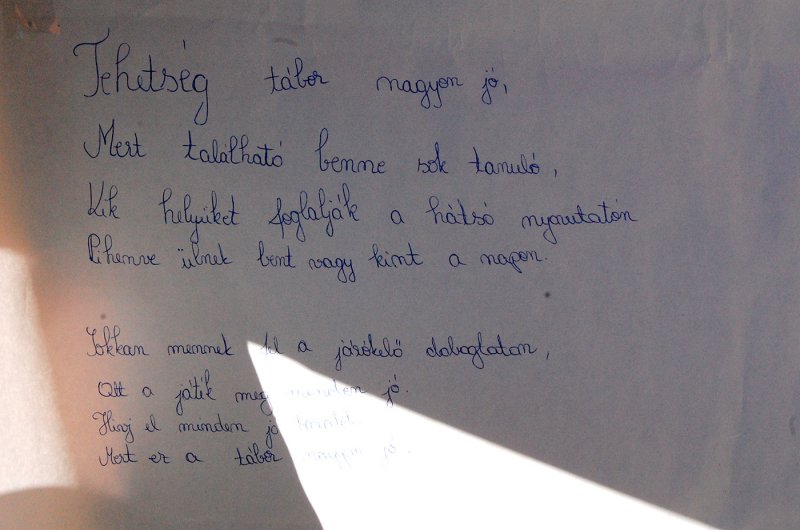 Tehetség tábor nagyon jó,
Mert található benne sok tanuló,
Kik helyüket foglalják a hátsó nyomtatón
Pihenve ülnek bent vagy kint a napon.
Sokkan mennek fel a járókelő dobogtaton,
Ott a játék meg minden jó.
Hinj el minden jó
Mert ez a tábor nagyon jó.